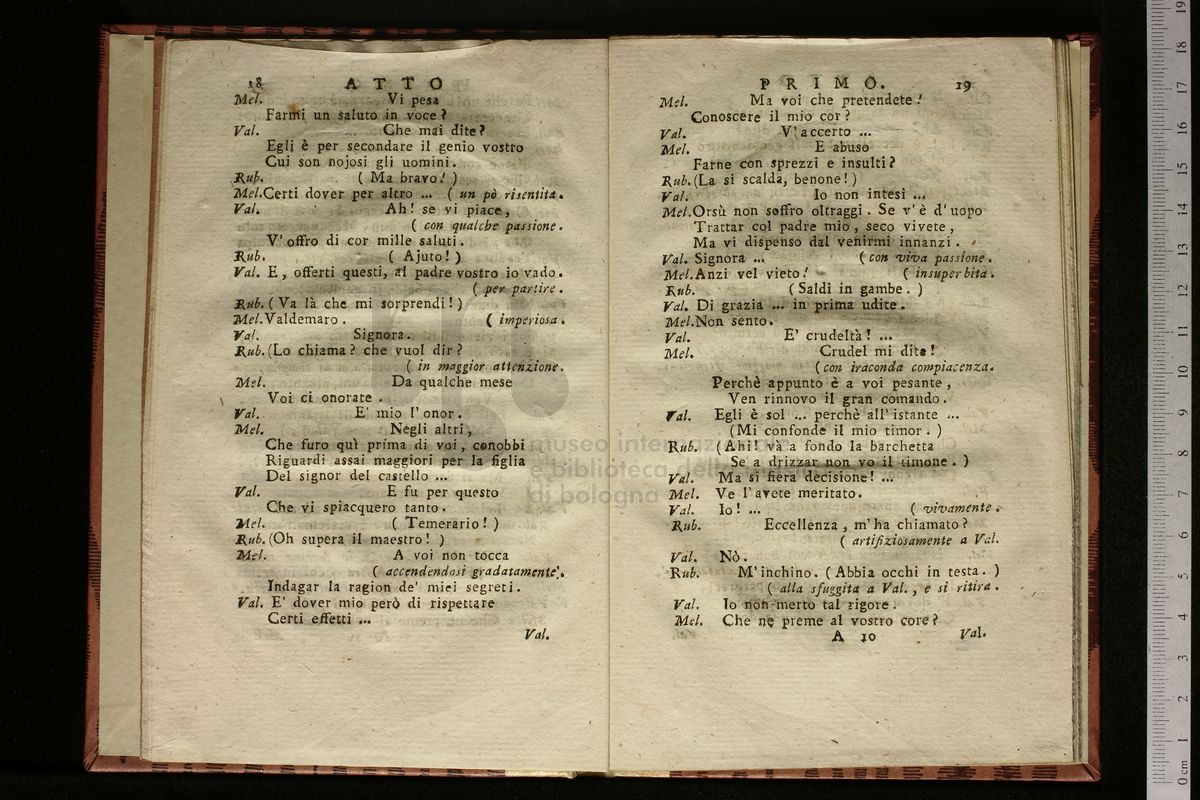 18 ATTO
Mel. Vi pesa
Farmi un saluto in voce?
Val. ... Che mai dite?
Egli è per secondare il genio vostro
Cui son nojosi gli uomini.
Rub. ( Ma bravo! )
Mel. Certi dover per altro ... ( un pò risentita.
Val. Ah! se vi piace,
( con qualche passione.
V' offro di cor mille saluti.
Rub. ( Ajuto! )
Val. E, offerti questi, al padre vostro io vado.
( per partire.
Rub. ( Va là che mi sorprendi! )
Mel. Valdemaro. ( imperiosa.
Val. Signora.
Rub. (Lo chiama? che vuol dir?
( in maggior attenzione.
Mel. Da qualche mese
Voi ci onorate.
Val. E' mio l' onor.
Mel. Negli altri,
Che furo quì prima di voi, conobbi
Riguardi assai maggiori per la figlia
Del signor del castello ...
Val. E fu per questo
Che vi spiacquero tanto.
Mel. ( Temerario! )
Rub. (Oh supera il maestro! )
Mel. A voi non tocca
( accendendosi gradatamente.
Indagar la ragion de' miei segreti.
Val. E' dover mio però di rispettare
Certi effetti ...
Val.
PRIMO. 19
Mel. Ma voi che pretendete!
Conoscere il mio cor?
Val. V' accerto ...
Mel. E abuso
Farne con sprezzi e insulti?
Rub. (La si scalda, benone!)
Val. Io non intesi ...
Mel. Orsù non soffro oltraggi. Se v' è d' uopo
Trattar col padre mio, seco vivete,
Ma vi dispenso dal venirmi innanzi.
Val. Signora ... (con viva passione.
Mel. Anzi vel vieto! ( insuperbita.
Rub. (Saldi in gambe. )
Val. Di grazia ... in prima udite.
Mel. Non sento.
Val. E' crudeltà! ...
Mel. Crudel mi dite!
(con iraconda compiacenza.
Perchè appunto è a voi pesante,
Ven rinnovo il gran comando.
Val. Egli è sol ... perchè all' istante ...
(Mi confonde il mio timor. )
Rub. (Ahi! và a fondo la barchetta
Se a drizzar non vo il timone. )
Val. Ma sì fiera decisione! ...
Mel. Ve l' avete meritato.
Val. Io! ... ( vivamente.
Rub. Eccellenza, m' ha chiamato?
( artifiziosamente a Val.
Val. Nò.
Rub. M' inchino. ( Abbia occhi in testa. )
( alla sfuggita a Val., e si ritira.
Val. Io non merto tal rigore.
Mel. Che ne preme al vostro core?
A 10 Val.
museo internazionale
e biblioteca della
di bologna
0 cm 1 2 3 4 5 6 7 8 9 10 11 12 13 14 15 16 17 18 19